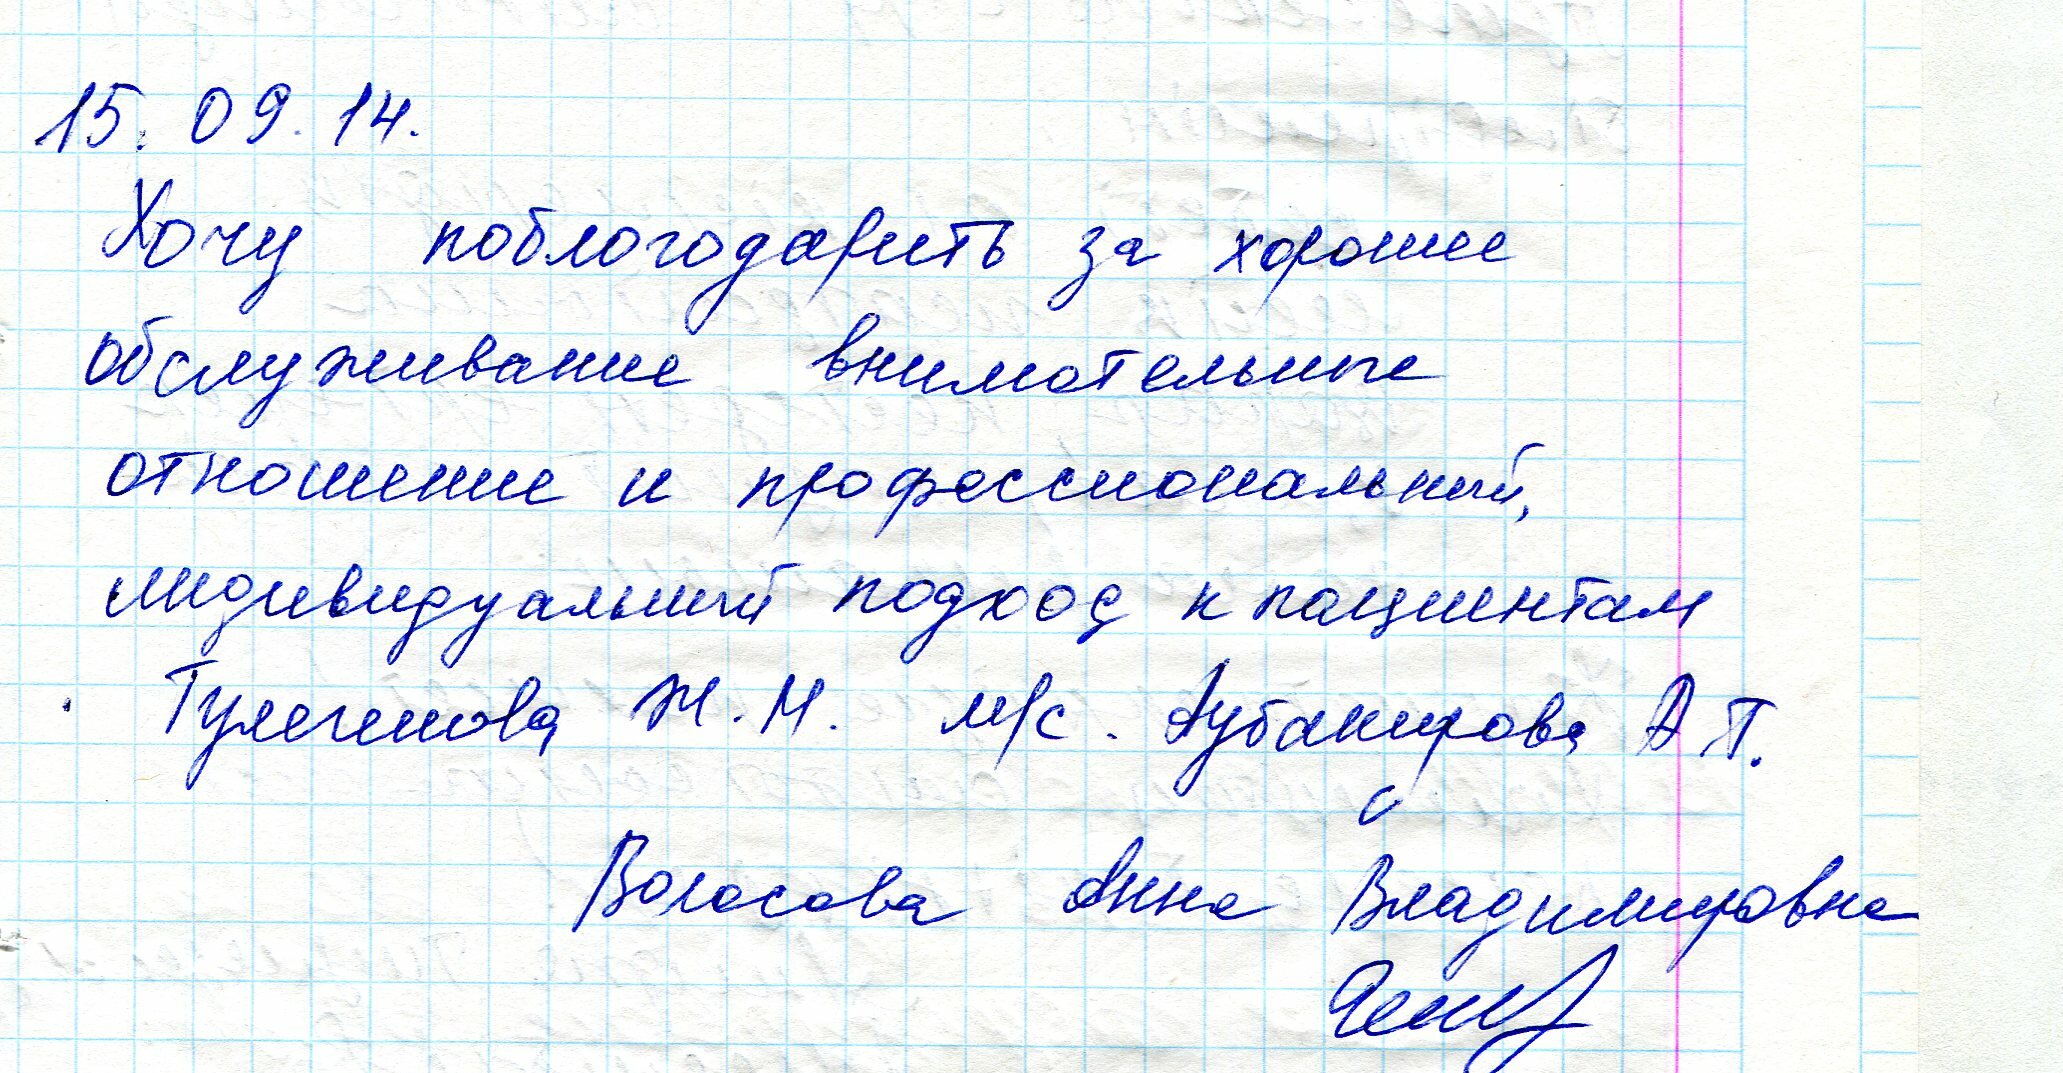 15.09.14.
Хочу поблогодарить за хорошее
обслуживание внимотельные
отношение и профессиональный,
индивидуальный подход к пациентам
Тулегенова Ж.М. м/с. Аубакирова А Т.
Волосова Анна Владимировна